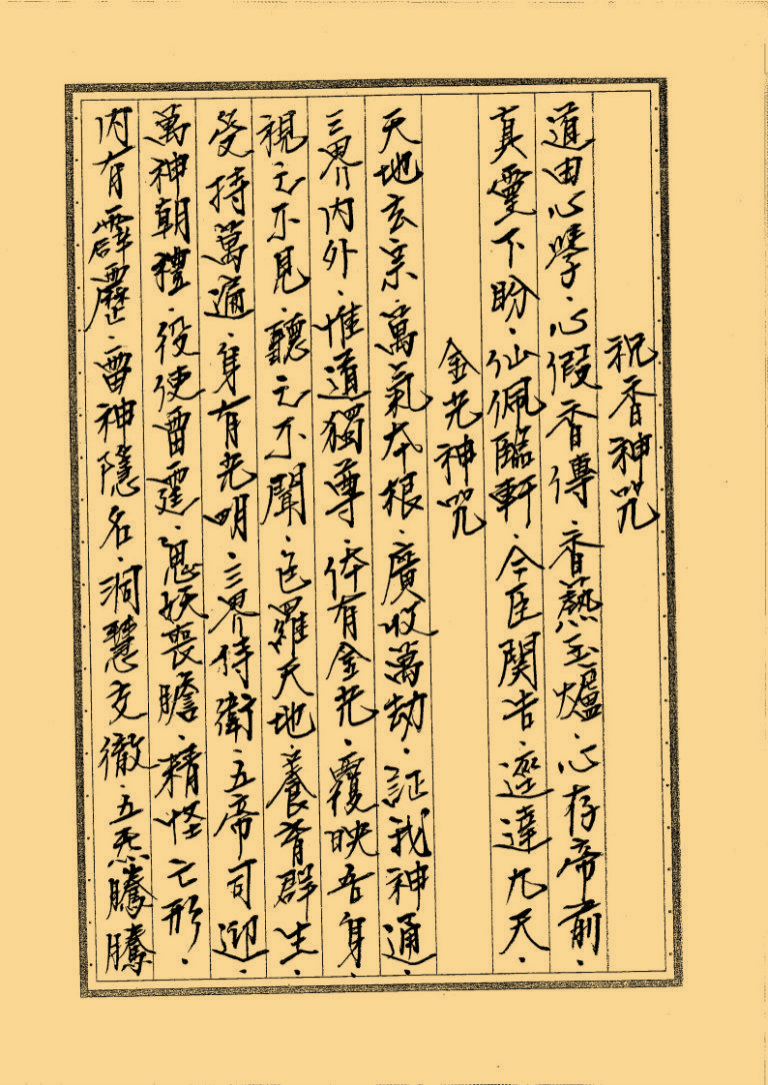 祝香神咒
道由心學．心假香傳．香爇玉爐．心存帝前．
真靈下盼．仙佩臨軒．今臣関告．逕達九天．
金光神咒
天地玄宗．萬氣本根．廣收萬劫．証我神通．
三界內外．惟道獨尊．体有金光．覆映吾身．
視之不見．聽之不聞．包羅天地．養育群生．
受持萬遍．身有光明．三界侍衛．五帝司迎．
萬神朝禮．役使雷霆．鬼妖喪膽．精怪亡形．
內有霹靂．雷神隱名．洞慧交徹．五炁騰騰